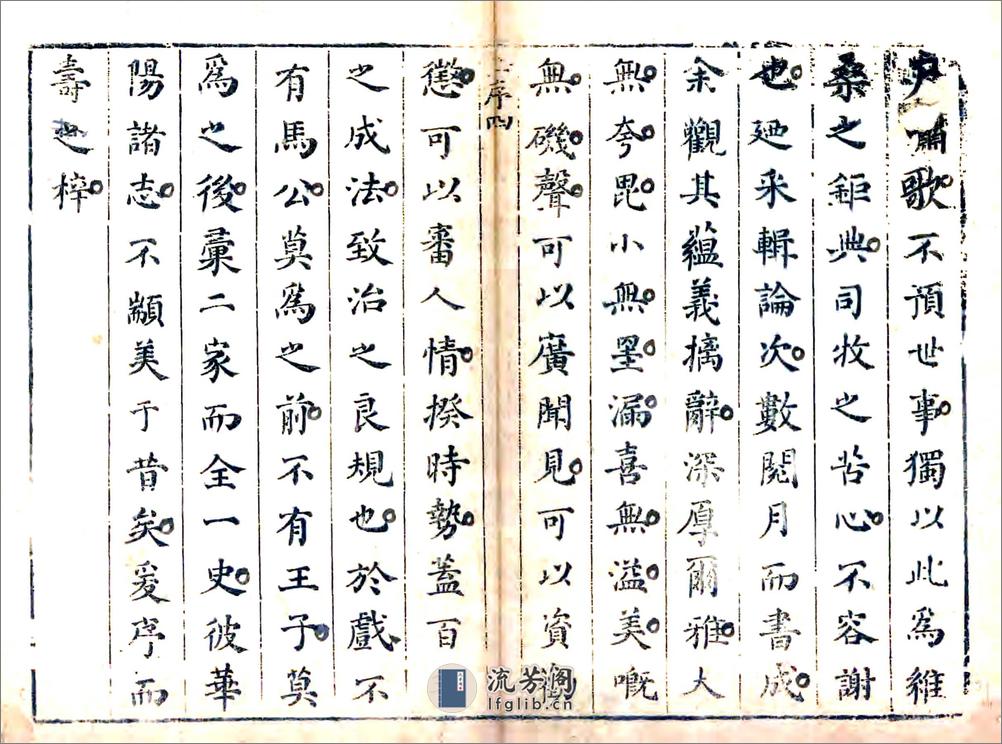 歌不預世事獨以此爲維
桑之鉅典司牧之苦心不容謝
也廼采輯論次數閱月而書成
余觀其蘊義摛辭深厚爾雅大
無夸毘小無罣漏喜無溢美嘅
無磯聲可以廣聞見可以資
序四
懲可以審人情揆時勢蓋百
之成法致治之良規也於戲不
有馬公莫爲之前不有王子莫
爲之後彙二家而全一史彼華
陽諸志不顓美于昔矣爰序而
壽之梓
流芳阁
lfglib.cn